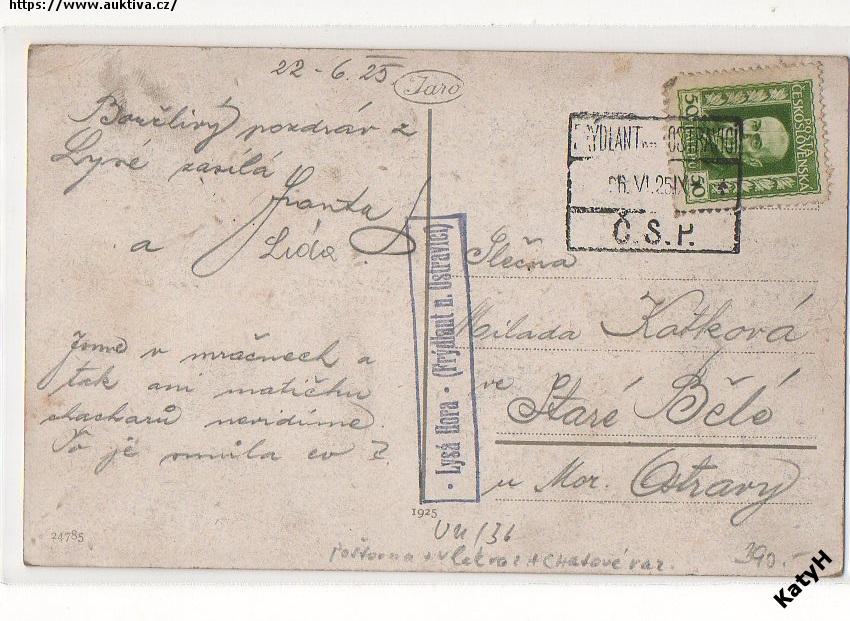 https://www.auktiva.cz/
22-6.25
Jaro
Bouřlivý pozdrav z
Lysé zasílá
Franta
a Lída
Jsme v mračnech a
tak ani matičku
nevidíme.
To je smůla co?
FRÝDLANT OSTRAVICÍ
VI.25
Č.S.P.
50 50
POŠTA
ČESKOSLOVENSKÁ
· Lysá Hora · (Frýdlant n. Ostravicí)
Slečna
Milada Kotková
ve
Staré Bělé
u Mor. Ostravy
1925
24785
VU/36
Poštovna + vlakové + chatové raz.
390.-
KatyH